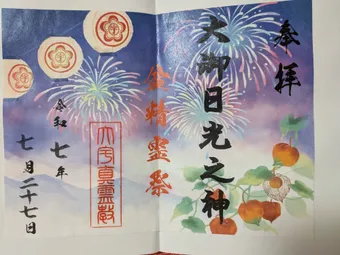 参拝
大御日光之神
金精霊祭
令和七年
七月二十七日